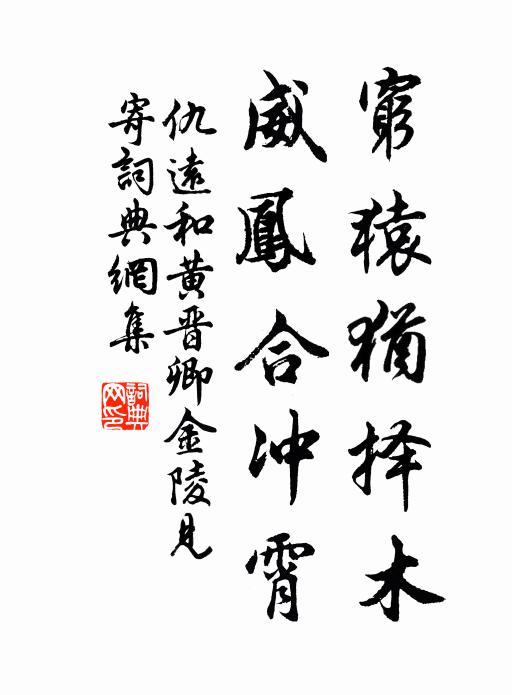 窮猿猶择木
威鳳合冲霄
仇遠和黄晋卿金陵見
寄詞典網集
詞典网印